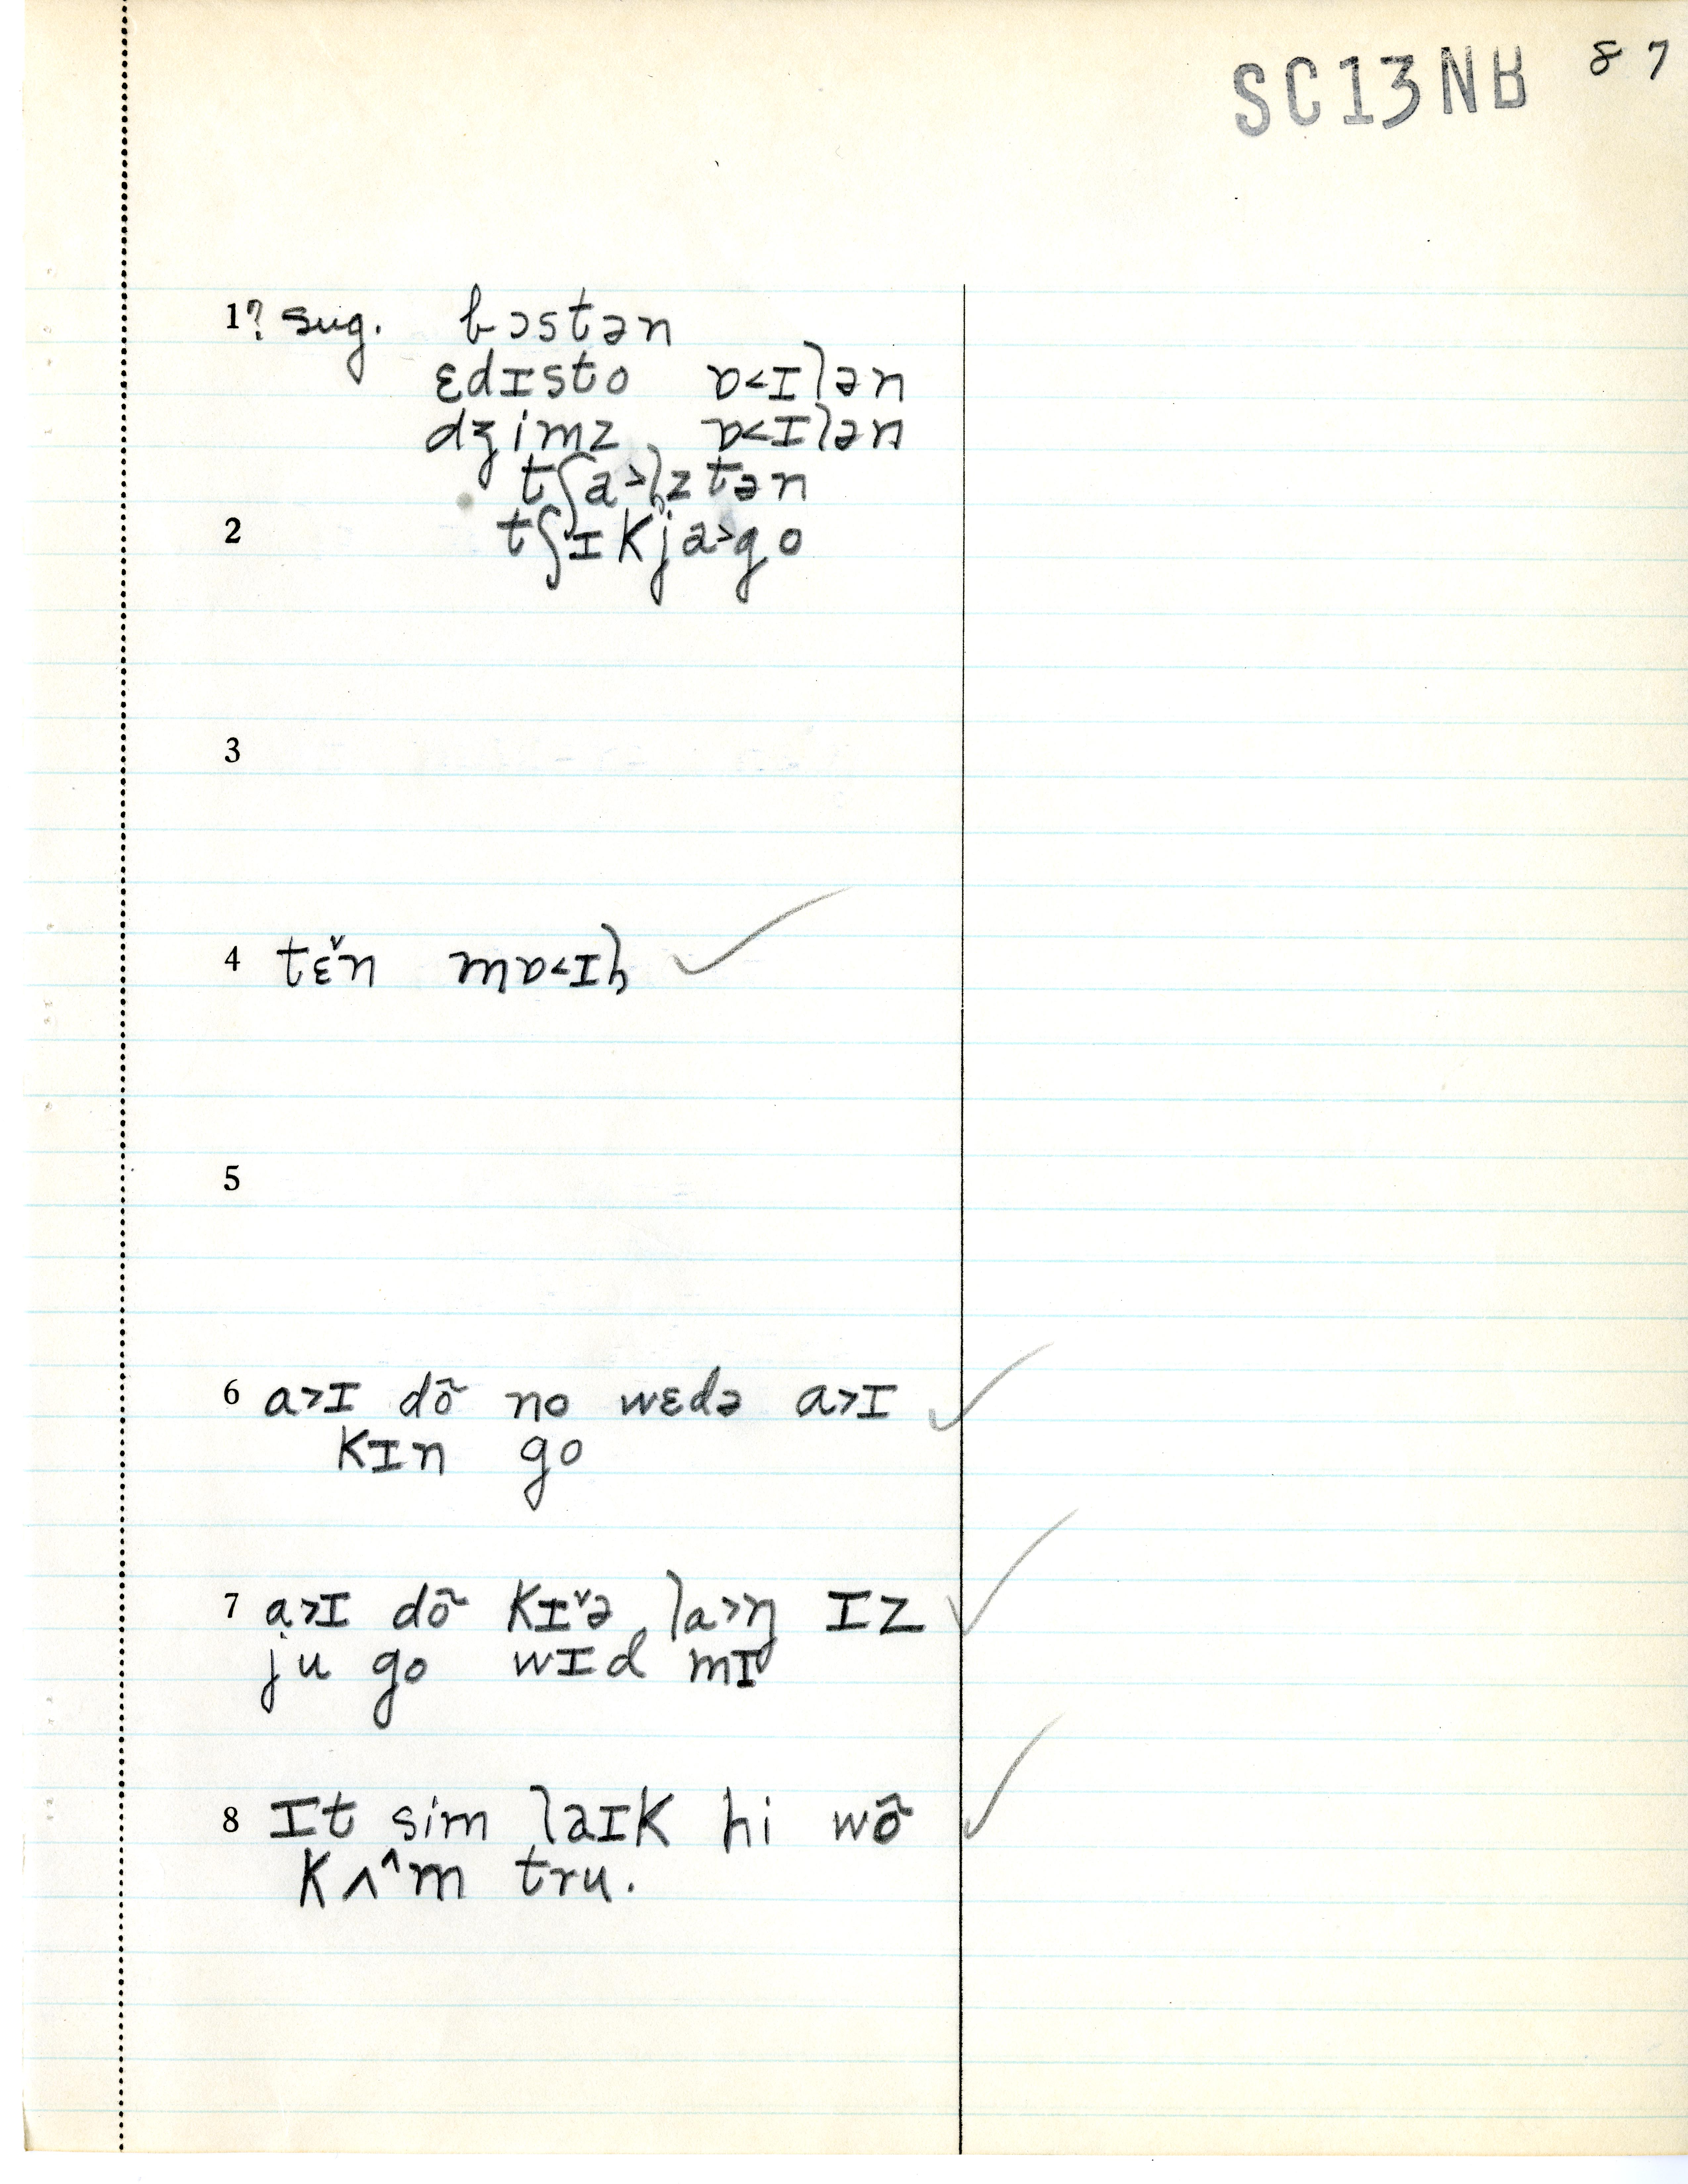 SC13NB 87
1 ? sug. bɔstən
ɛdɪsto ɒ<ɪlən
dʒimz ɒ<ɪlən
tʃa>lztən
2 tʃɪkja>go
3
4 tɛ̌n mɒ<ɪɫ ✓
5
6 a>ɪ dõ no wɛdə a>ɪ ✓
kɪn go
7 a>ɪ dõ kɪˇə la>ŋ ɪz ✓
ju go wɪd mɪ
8 ɪt sim laɪk hi wõ ✓
kʌ^m tru.